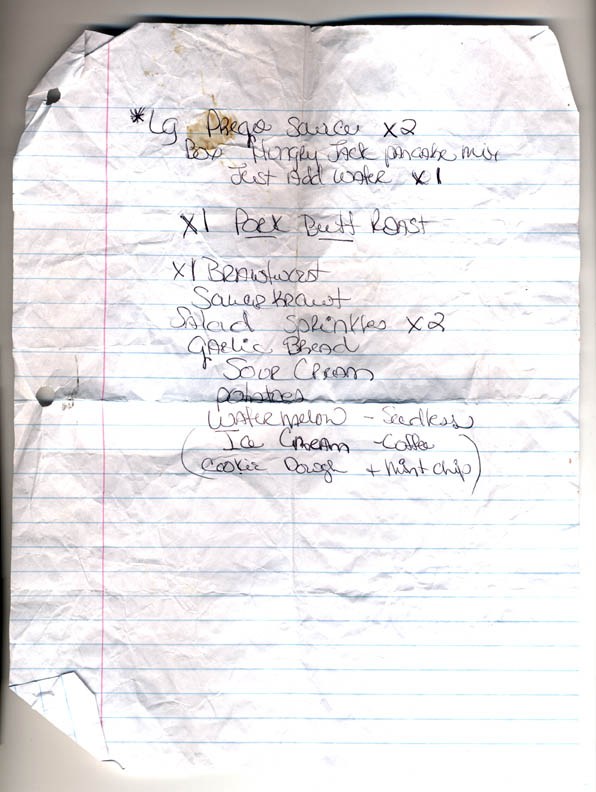 *Lg Prego Sauce x2
Box Hungry Jack pancake mix
Just Add Water x1
x1 Pork Butt Roast
x1 Brawtwurst
Sauerkrawt
Salad Sprinkles x2
Garlic Bread
Sour Cream
potatoes
Watermelon - Seedless
(Ice Cream - Coffee
Cookie Dough + mint chip)